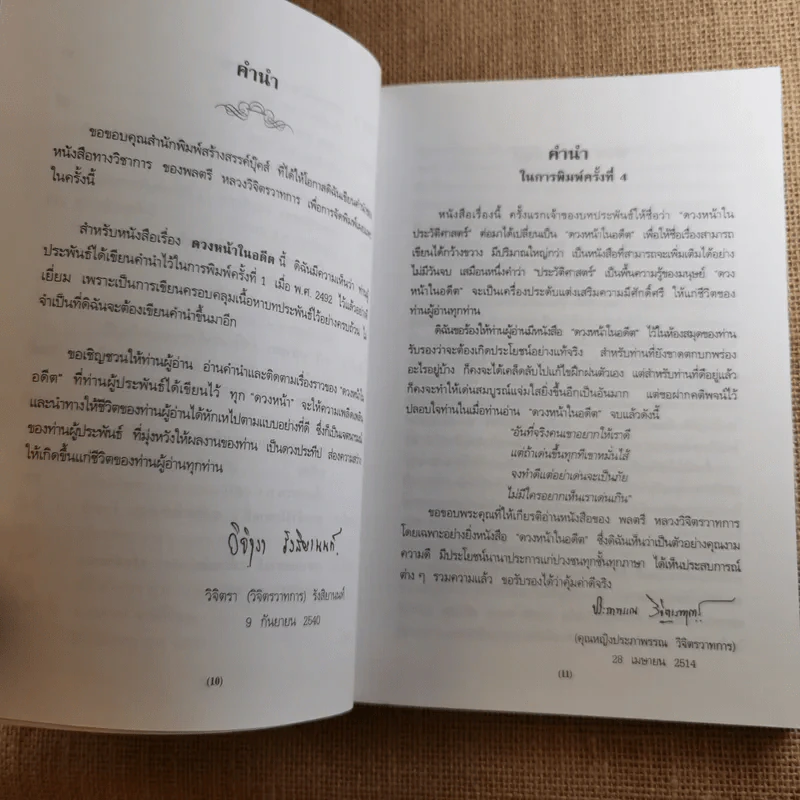 คำนำ
ขอขอบคุณสำนักพิมพ์สร้างสรรค์บุ๊คส์ ที่ได้ให้โอกาสดิฉันเขียนคำนำของ
หนังสือทางวิชาการ ของพลตรี หลวงวิจิตรวาทการ เพื่อการจัดพิมพ์เผยแพร่
ในครั้งนี้
สำหรับหนังสือเรื่อง ดวงหน้าในอดีต นี้ ดิฉันมีความเห็นว่า ท่านผู้
ประพันธ์ได้เขียนคำนำไว้ในการพิมพ์ครั้งที่ 1 เมื่อ พ.ศ. 2492 ไว้แล้วอย่างดี
เยี่ยม เพราะเป็นการเขียนครอบคลุมเนื้อหาบทประพันธ์ไว้อย่างครบถ้วน ไม่
จำเป็นที่ดิฉันจะต้องเขียนคำนำขึ้นมาอีก
ขอเชิญชวนให้ท่านผู้อ่าน อ่านคำนำและติดตามเรื่องราวของ "ดวงหน้าใน
อดีต" ที่ท่านผู้ประพันธ์ได้เขียนไว้ ทุก "ดวงหน้า" จะให้ความเพลิดเพลิน
และนำทางให้ชีวิตของท่านผู้อ่านได้หักเหไปตามแบบอย่างที่ดี ซึ่งก็เป็นเจตนารมณ์
ของท่านผู้ประพันธ์ ที่มุ่งหวังให้ผลงานของท่าน เป็นดวงประทีป ส่องความสว่าง
ให้เกิดขึ้นแก่ชีวิตของท่านผู้อ่านทุกท่าน
วิจิตรา รังสิยานนท์
วิจิตรา (วิจิตรวาทการ) รังสิยานนท์
9 กันยายน 2540
(10)
คำนำ
ในการพิมพ์ครั้งที่ 4
หนังสือเรื่องนี้ ครั้งแรกเจ้าของบทประพันธ์ให้ชื่อว่า "ดวงหน้าใน
ประวัติศาสตร์" ต่อมาได้เปลี่ยนเป็น "ดวงหน้าในอดีต" เพื่อให้ชื่อเรื่องสามารถ
เขียนได้กว้างขวาง มีปริมาณใหญ่กว่า เป็นหนังสือที่สามารถจะเพิ่มเติมได้อย่าง
ไม่มีวันจบ เสมือนหนึ่งคำว่า "ประวัติศาสตร์" เป็นพื้นความรู้ของมนุษย์ "ดวง
หน้าในอดีต" จะเป็นเครื่องประดับแต่งเสริมความมีศักดิ์ศรี ให้แก่ชีวิตของ
ท่านผู้อ่านทุกท่าน
ดิฉันขอร้องให้ท่านผู้อ่านมีหนังสือ "ดวงหน้าในอดีต" ไว้ในห้องสมุดของท่าน
รับรองว่าจะต้องเกิดประโยชน์อย่างแท้จริง สำหรับท่านที่ยังขาดตกบกพร่อง
อะไรอยู่บ้าง ก็คงจะได้เคล็ดลับไปแก้ไขฝึกฝนตัวเอง แต่สำหรับท่านที่ดีอยู่แล้ว
ก็คงจะทำให้เด่นสมบูรณ์แจ่มใสยิ่งขึ้นอีกเป็นอันมาก แต่ขอฝากคติพจน์ไว้
ปลอบใจท่านในเมื่อท่านอ่าน "ดวงหน้าในอดีต" จบแล้วดังนี้
"อันที่จริงคนเขาอยากให้เราดี
แต่ถ้าเด่นขึ้นทุกทีเขาหมั่นไส้
จงทำดีแต่อย่าเด่นจะเป็นภัย
ไม่มีใครอยากเห็นเราเด่นเกิน"
ขอขอบพระคุณที่ให้เกียรติอ่านหนังสือของ พลตรี หลวงวิจิตรวาทการ
โดยเฉพาะอย่างยิ่งหนังสือ "ดวงหน้าในอดีต" ซึ่งดิฉันเห็นว่าเป็นตัวอย่างคุณงาม
ความดี มีประโยชน์นานาประการแก่ปวงชนทุกชั้นทุกภาษา ได้เห็นประสบการณ์
ต่าง ๆ รวมความแล้ว ขอรับรองได้ว่าคุ้มค่าดีจริง
ประภาพรรณ วิจิตรวาทการ
(คุณหญิงประภาพรรณ วิจิตรวาทการ)
28 เมษายน 2514
(11)